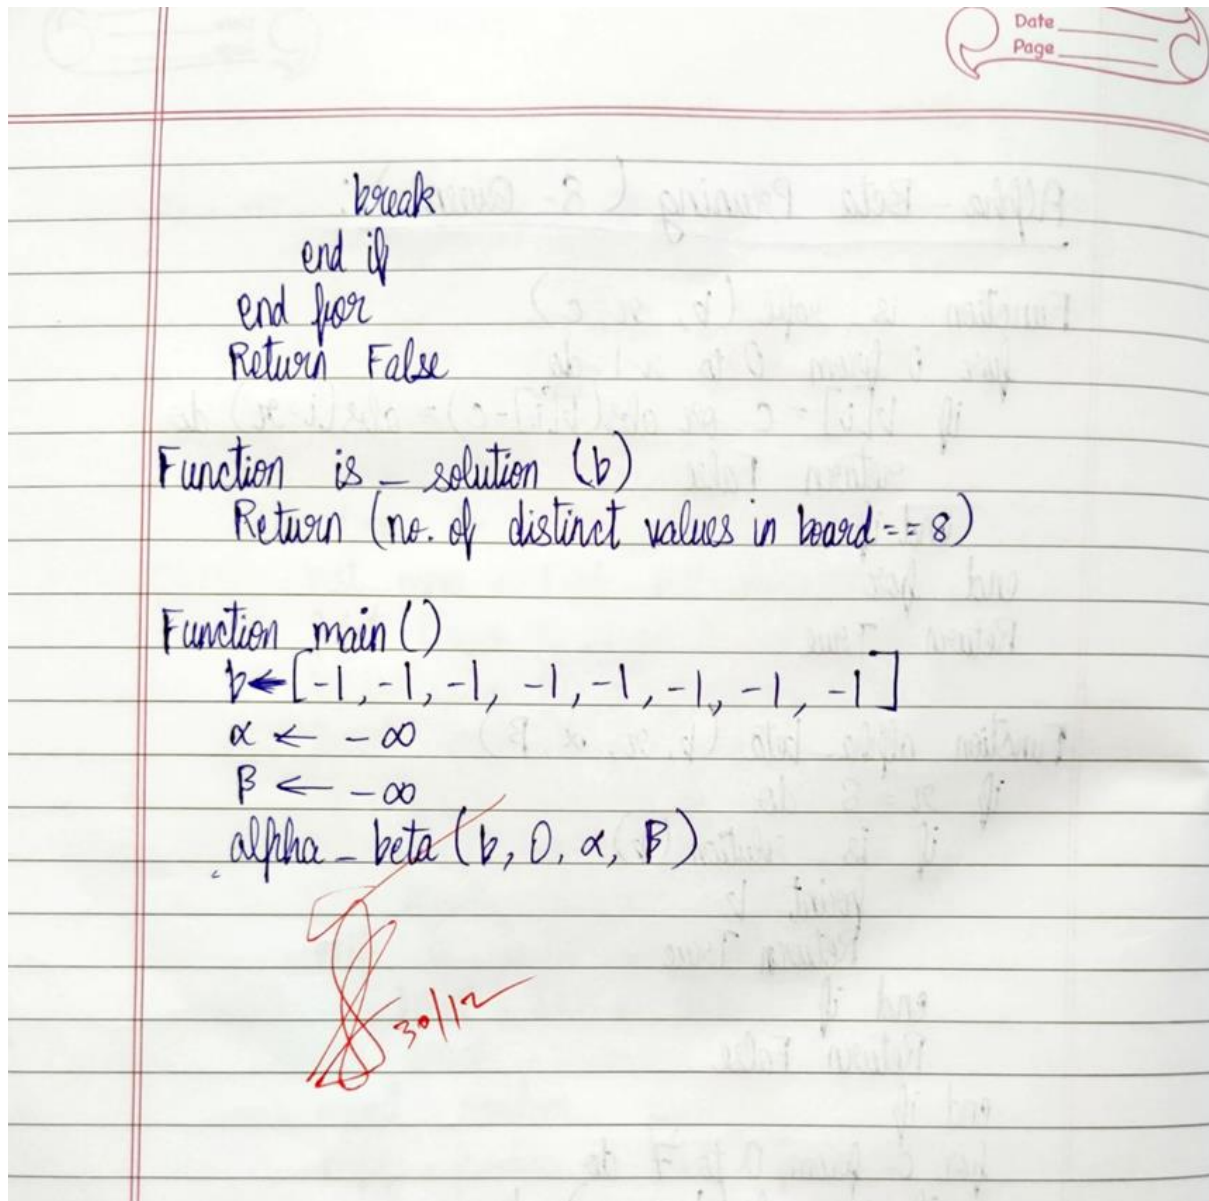 Date
Page
break
end if
end for
Return False
Function is_solution (b)
Return (no. of distinct values in board == 8)
Function main()
b ← [-1, -1, -1, -1, -1, -1, -1, -1]
α ← -∞
β ← -∞
alpha_beta (b, 0, α, β)
30/12